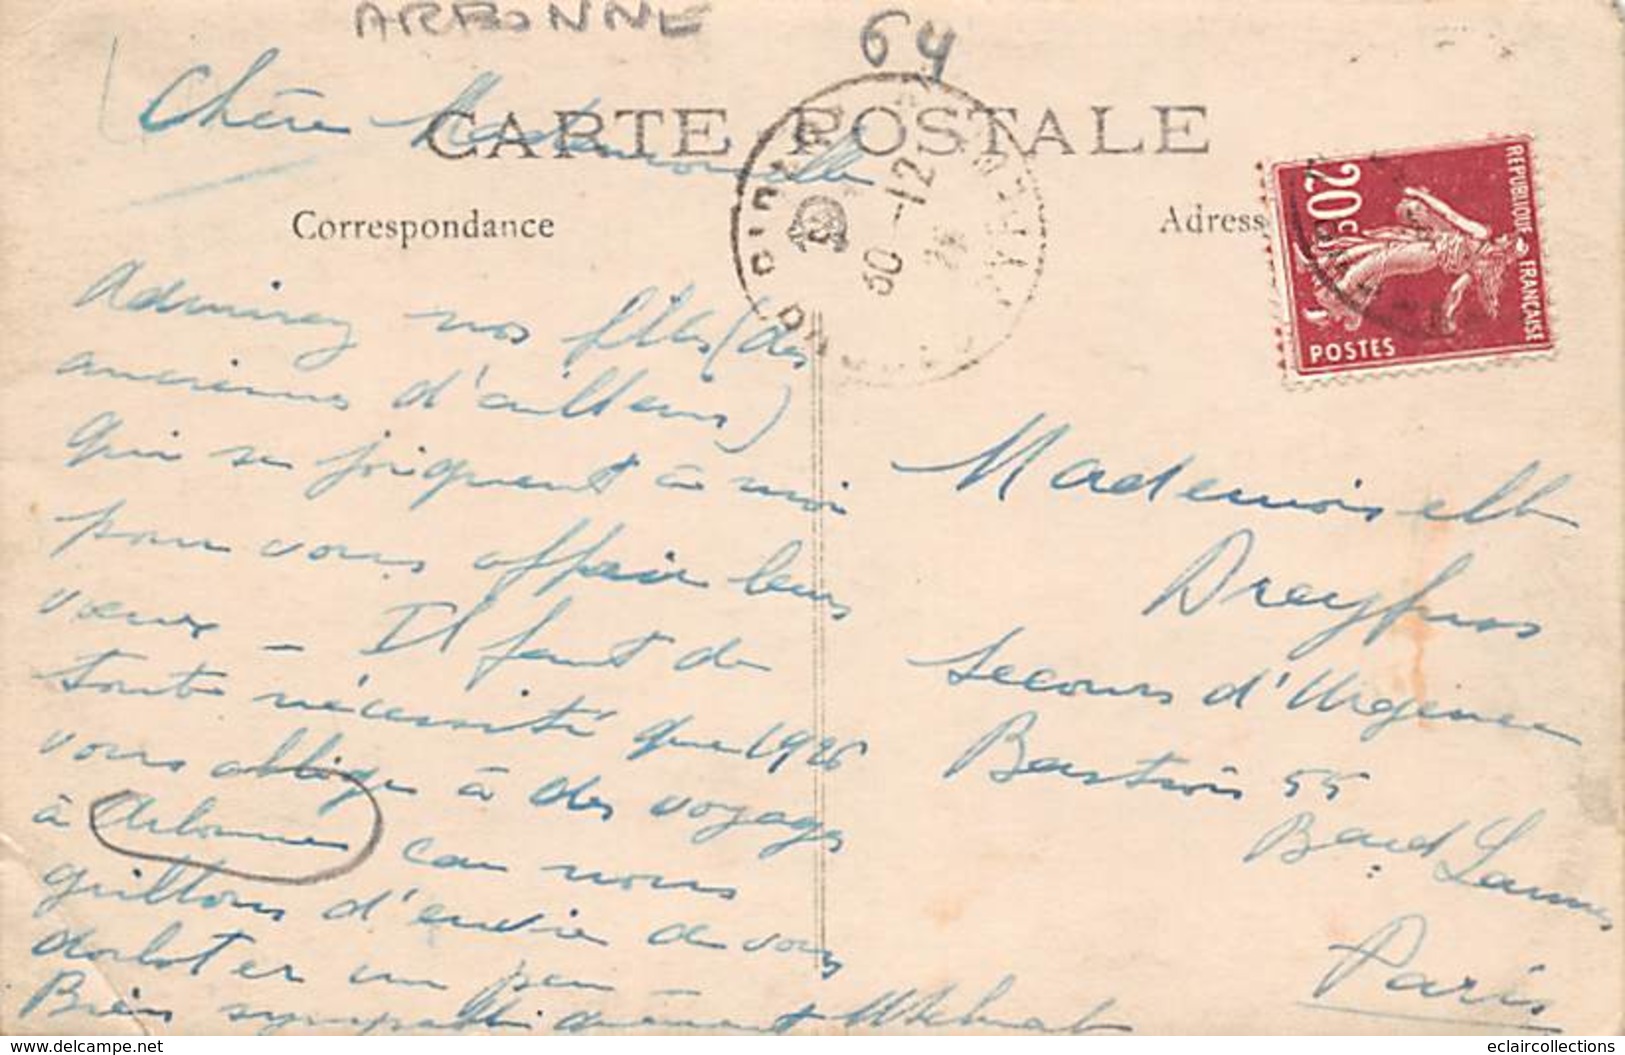 ARBONNE
64
Chère Mademoiselle
CARTE POSTALE
Correspondance
Adress
30 -12
RÉPUBLIQUE FRANÇAISE
20c
POSTES
Admirez nos filles (des
anciennes d'ailleurs)
qui se joignent à moi
pour vous offrir leurs
vœux - Il faut de
toute nécessité que 1926
vous oblige à des voyages
à Arbonne car nous
grillons d'envie de vous
dorloter un peu -
Bien sympathiquement
Mademoiselle
Dreyfus
Secours d'Urgence
Bastion 55
Bard Lannes
Paris
www.delcampe.net
eclaircollections